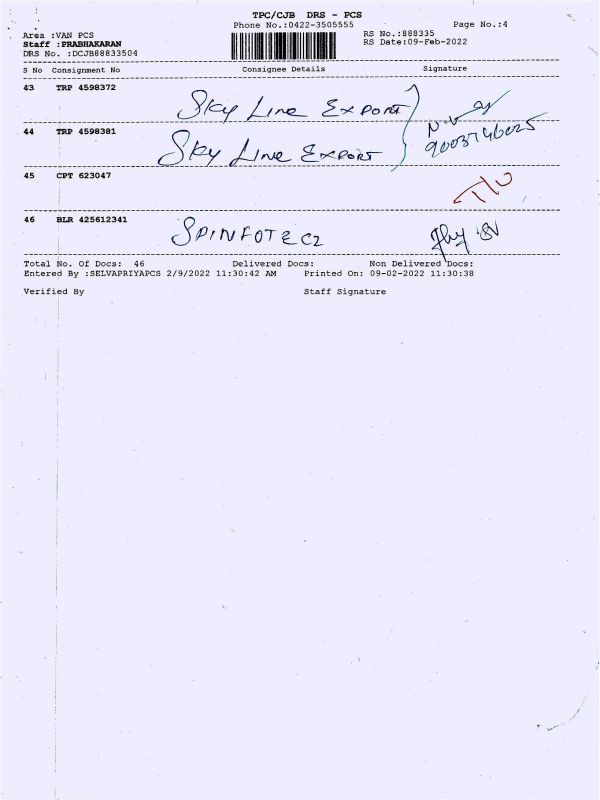 TPC/CJB DRS - PCS
Phone No.:0422-3505555 Page No.:4
Area :VAN PCS RS No.:888335
Staff :PRABHAKARAN RS Date:09-Feb-2022
DRS No. :DCJB88833504
S No Consignment No Consignee Details Signature
43 TRP 4598372
Sky Line Export
44 TRP 4598381
Sky Line Export
9003746025
45 CPT 623047
46 BLR 425612341
SPINFOTECZ
Total No. Of Docs: 46 Delivered Docs: Non Delivered Docs:
Entered By :SELVAPRIYAPCS 2/9/2022 11:30:42 AM Printed On: 09-02-2022 11:30:38
Verified By Staff Signature